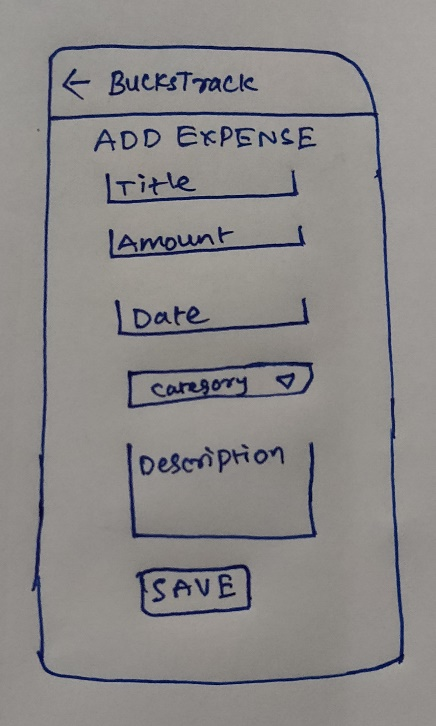 ← BucksTrack
ADD EXPENSE
Title
Amount
Date
Category
Description
SAVE